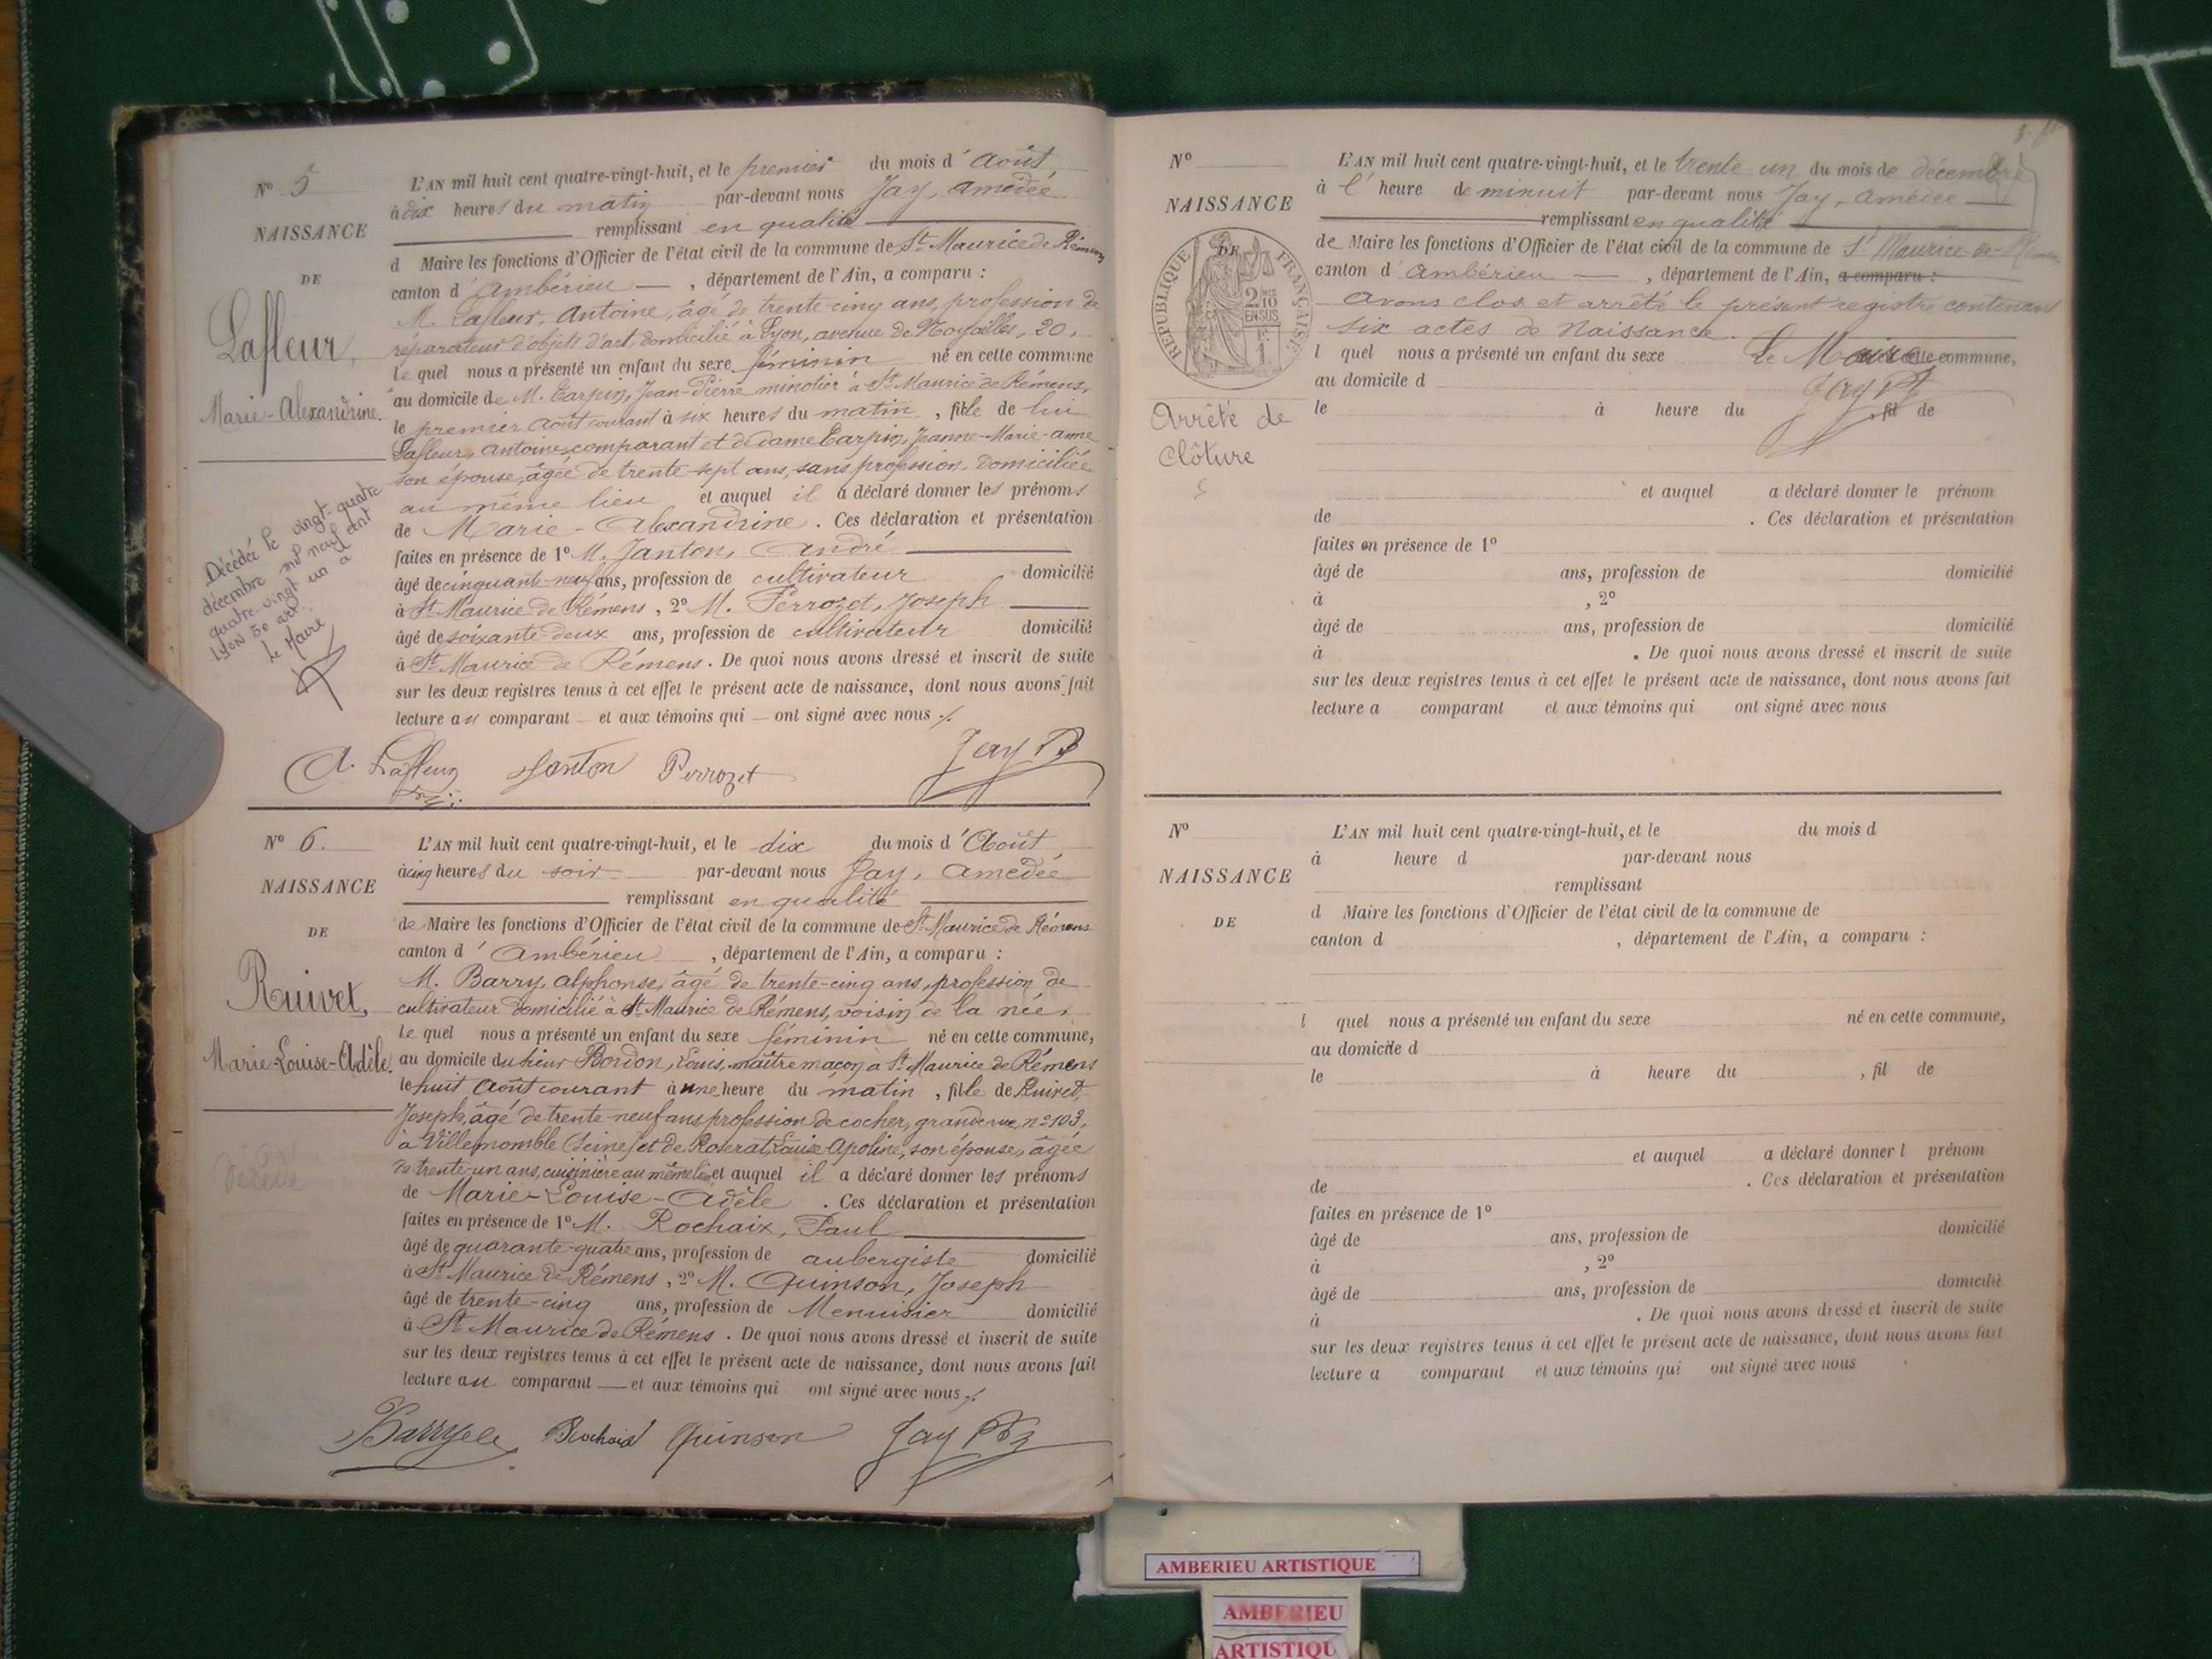 N° 5
NAISSANCE
DE
Lafleur,
Marie-Alexandrine.
Décédée le vingt-quatre
décembre mil neuf cent
quatre-vingt un à
LYON 5e arr.
Le Maire
L'AN mil huit cent quatre-vingt-huit, et le premier du mois d'Août
à dix heures du matin par-devant nous Jay, Amédée
remplissant en qualité
d Maire les fonctions d'Officier de l'état civil de la commune de St Maurice de Rémens
canton d'Ambérieu, département de l'Ain, a comparu :
M. Lafleur, Antoine, âgé de trente-cinq ans, profession de
réparateur d'objets d'art, domicilié à Lyon, avenue de Noailles, 20,
Lequel nous a présenté un enfant du sexe féminin né en cette commune
au domicile de M. Carpin, Jean-Pierre minotier à St Maurice de Rémens,
le premier Août courant à six heures du matin, fille de lui
Lafleur, Antoine, comparant et de dame Carpin, Jeanne-Marie-Anne
son épouse, âgée de trente-sept ans, sans profession, domiciliée
au même lieu et auquel il a déclaré donner les prénoms
de Marie-Alexandrine. Ces déclaration et présentation
faites en présence de 1° M. Janton, André
âgé de cinquante-neuf ans, profession de cultivateur domicilié
à St Maurice de Rémens, 2° M. Perrozet, Joseph
âgé de soixante-deux ans, profession de cultivateur domicilié
à St Maurice de Rémens. De quoi nous avons dressé et inscrit de suite
sur les deux registres tenus à cet effet le présent acte de naissance, dont nous avons fait
lecture au comparant et aux témoins qui ont signé avec nous
A. Lafleur Janton Perrozet Jay
N° 6.
NAISSANCE
DE
Ruivet,
Marie-Louise-Adèle.
Décédé
L'AN mil huit cent quatre-vingt-huit, et le dix du mois d'Août
à cinq heures du soir par-devant nous Jay, Amédée
remplissant en qualité
de Maire les fonctions d'Officier de l'état civil de la commune de St Maurice de Rémens
canton d'Ambérieu, département de l'Ain, a comparu :
M. Barry, Alphonse, âgé de trente-cinq ans, profession de
cultivateur domicilié à St Maurice de Rémens, voisin de la née,
Lequel nous a présenté un enfant du sexe féminin né en cette commune,
au domicile du sieur Bordon, Louis, maître maçon à St Maurice de Rémens
le huit Août courant à une heure du matin, fille de Ruivet,
Joseph, âgé de trente-neuf ans profession de cocher, grande rue, n° 103,
à Villemomble (Seine) et de Roserat, Louise Apoline, son épouse, âgée
de trente-un ans, cuisinière au même lieu et auquel il a déclaré donner les prénoms
de Marie-Louise-Adèle. Ces déclaration et présentation
faites en présence de 1° M. Rochaix, Paul
âgé de quarante-quatre ans, profession de aubergiste domicilié
à St Maurice de Rémens, 2° M. Quinson, Joseph
âgé de trente-cinq ans, profession de Menuisier domicilié
à St Maurice de Rémens. De quoi nous avons dressé et inscrit de suite
sur les deux registres tenus à cet effet le présent acte de naissance, dont nous avons fait
lecture au comparant et aux témoins qui ont signé avec nous
Barry Rochaix Quinson Jay
N°
NAISSANCE
DE
RÉPUBLIQUE FRANÇAISE
2/10
EN SUS
Arrêté de
clôture
L'AN mil huit cent quatre-vingt-huit, et le trente un du mois de décembre
à l'heure de minuit par-devant nous Jay, Amédée
remplissant en qualité
de Maire les fonctions d'Officier de l'état civil de la commune de St Maurice de Rémens
canton d'Ambérieu, département de l'Ain, a comparu :
Avons clos et arrêté le présent registre contenant
six actes de Naissance.
l quel nous a présenté un enfant du sexe Le Maire commune,
au domicile d Jay
le à heure du , fil de
et auquel a déclaré donner le prénom
de . Ces déclaration et présentation
faites en présence de 1°
âgé de ans, profession de domicilié
à , 2°
âgé de ans, profession de domicilié
à . De quoi nous avons dressé et inscrit de suite
sur les deux registres tenus à cet effet le présent acte de naissance, dont nous avons fait
lecture a comparant et aux témoins qui ont signé avec nous
N°
NAISSANCE
DE
L'AN mil huit cent quatre-vingt-huit, et le du mois d
à heure d par-devant nous
remplissant
d Maire les fonctions d'Officier de l'état civil de la commune de
canton d , département de l'Ain, a comparu :
l quel nous a présenté un enfant du sexe né en cette commune,
au domicile d
le à heure du , fil de
et auquel a déclaré donner l prénom
de . Ces déclaration et présentation
faites en présence de 1°
âgé de ans, profession de domicilié
à , 2°
âgé de ans, profession de domicilié
à . De quoi nous avons dressé et inscrit de suite
sur les deux registres tenus à cet effet le présent acte de naissance, dont nous avons fait
lecture a comparant et aux témoins qui ont signé avec nous
AMBERIEU ARTISTIQUE
AMBERIEU
ARTISTIQU